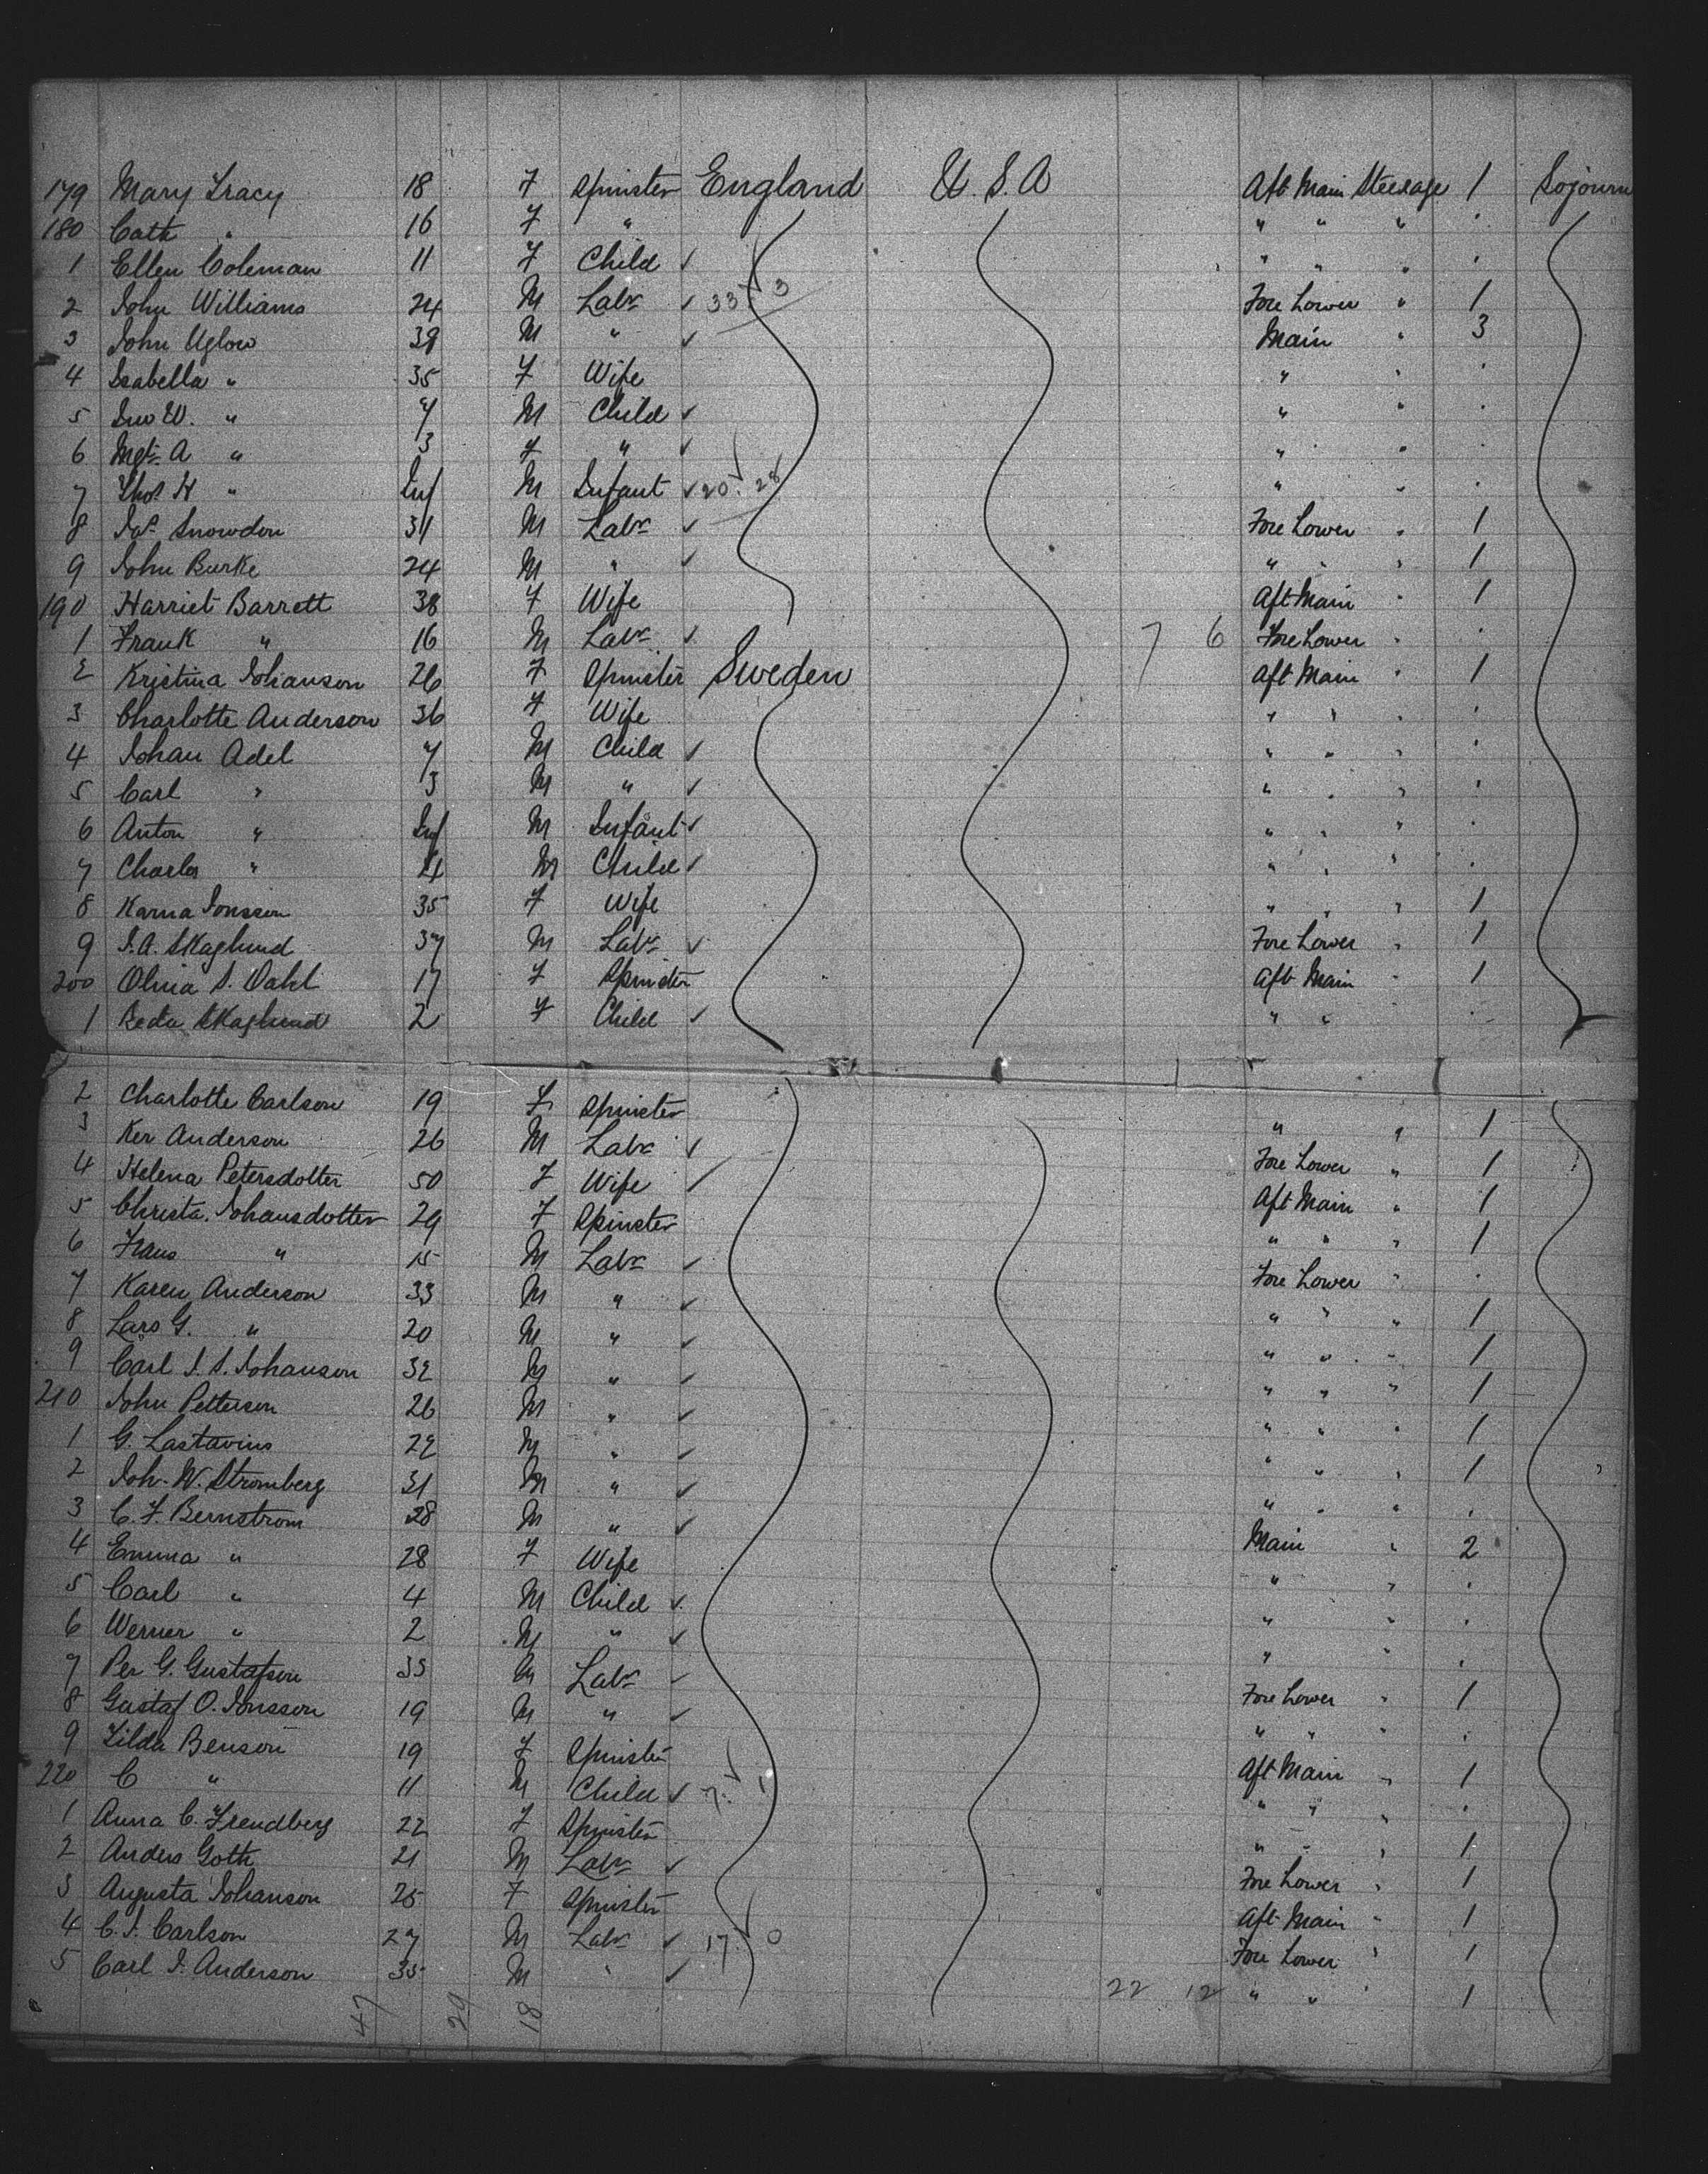 179 Mary Tracy 18 F Spinster England U.S.A Aft Main Steerage 1 Sojourn
180 Cath " 16 F " " " "
1 Ellen Coleman 11 F Child ✓ " " "
2 John Williams 24 M Labr ✓ 33 3 Fore Lower " 1
3 John Uglow 39 M " ✓ Main " 3
4 Isabella " 35 F Wife " "
5 Jno W. " 7 M Child ✓ " "
6 Mgt A " 3 F " ✓ " "
7 Thos H " Inf M Infant ✓ 20 28 " "
8 Jas Snowdon 31 M Labr ✓ Fore Lower " 1
9 John Burke 24 M " ✓ " " " 1
190 Harriet Barrett 38 F Wife Aft Main " 1
1 Frank " 16 M Labr ✓ 7 6 Fore Lower "
2 Kristina Johanson 26 F Spinster Sweden Aft Main " 1
3 Charlotte Anderson 36 F Wife " " "
4 Johan Adel 7 M Child ✓ " " "
5 Carl " 3 M " ✓ " " "
6 Anton " Inf M Infant ✓ " " "
7 Charles " 11 M Child ✓ " " "
8 Karna Jonsson 35 F Wife " " " 1
9 J.A. Skaglund 37 M Labr ✓ Fore Lower " 1
200 Olina S. Dahl 17 F Spinster Aft Main " 1
1 Beda Skaglund 2 F Child ✓ " "
2 Charlotte Carlson 19 F Spinster " " 1
3 Ker Anderson 26 M Labr ✓ Fore Lower " 1
4 Helena Petersdotter 50 F Wife Aft Main " 1
5 Christa. Johansdotter 29 F Spinster " " " 1
6 Frans " 15 M Labr ✓ Fore Lower "
7 Karen Anderson 33 M " ✓ " " " 1
8 Lars G. " 20 M " ✓ " " " 1
9 Carl J. S. Johanson 32 M " ✓ " " " 1
210 John Petterson 26 M " ✓ " " " 1
1 G. Lastavins 22 M " ✓ " " " 1
2 Joh. W. Stromberg 31 M " ✓ " " "
3 C. F. Bernstrom 28 M " ✓ Main " 2
4 Emma " 28 F Wife " "
5 Carl " 4 M Child ✓ " "
6 Werner " 2 M " ✓ " "
7 Per G. Gustafson 35 M Labr ✓ Fore Lower " 1
8 Gustaf O. Jonsson 19 M " ✓ " " "
9 Tilda Benson 19 F Spinster Aft Main " 1
220 C " 11 M Child ✓ 7. 1 " " "
1 Anna C. Frendberg 22 F Spinster " " " 1
2 Anders Goth 21 M Labr ✓ Fore Lower " 1
3 Augusta Johanson 25 F Spinster Aft Main " 1
4 C. J. Carlson 27 M Labr ✓ 17 0 Fore Lower " 1
5 Carl J. Anderson 35 M " ✓ 22 12 " " " 1
47 29 18